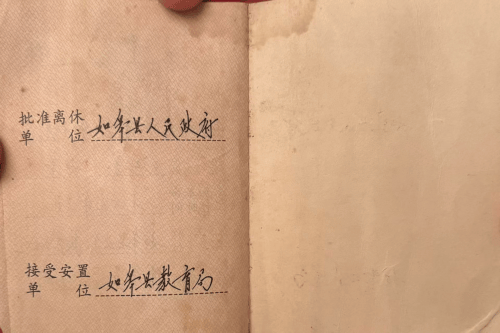 批准离休
单　　位 如皋县人民政府
接受安置
单　　位 如皋县教育局